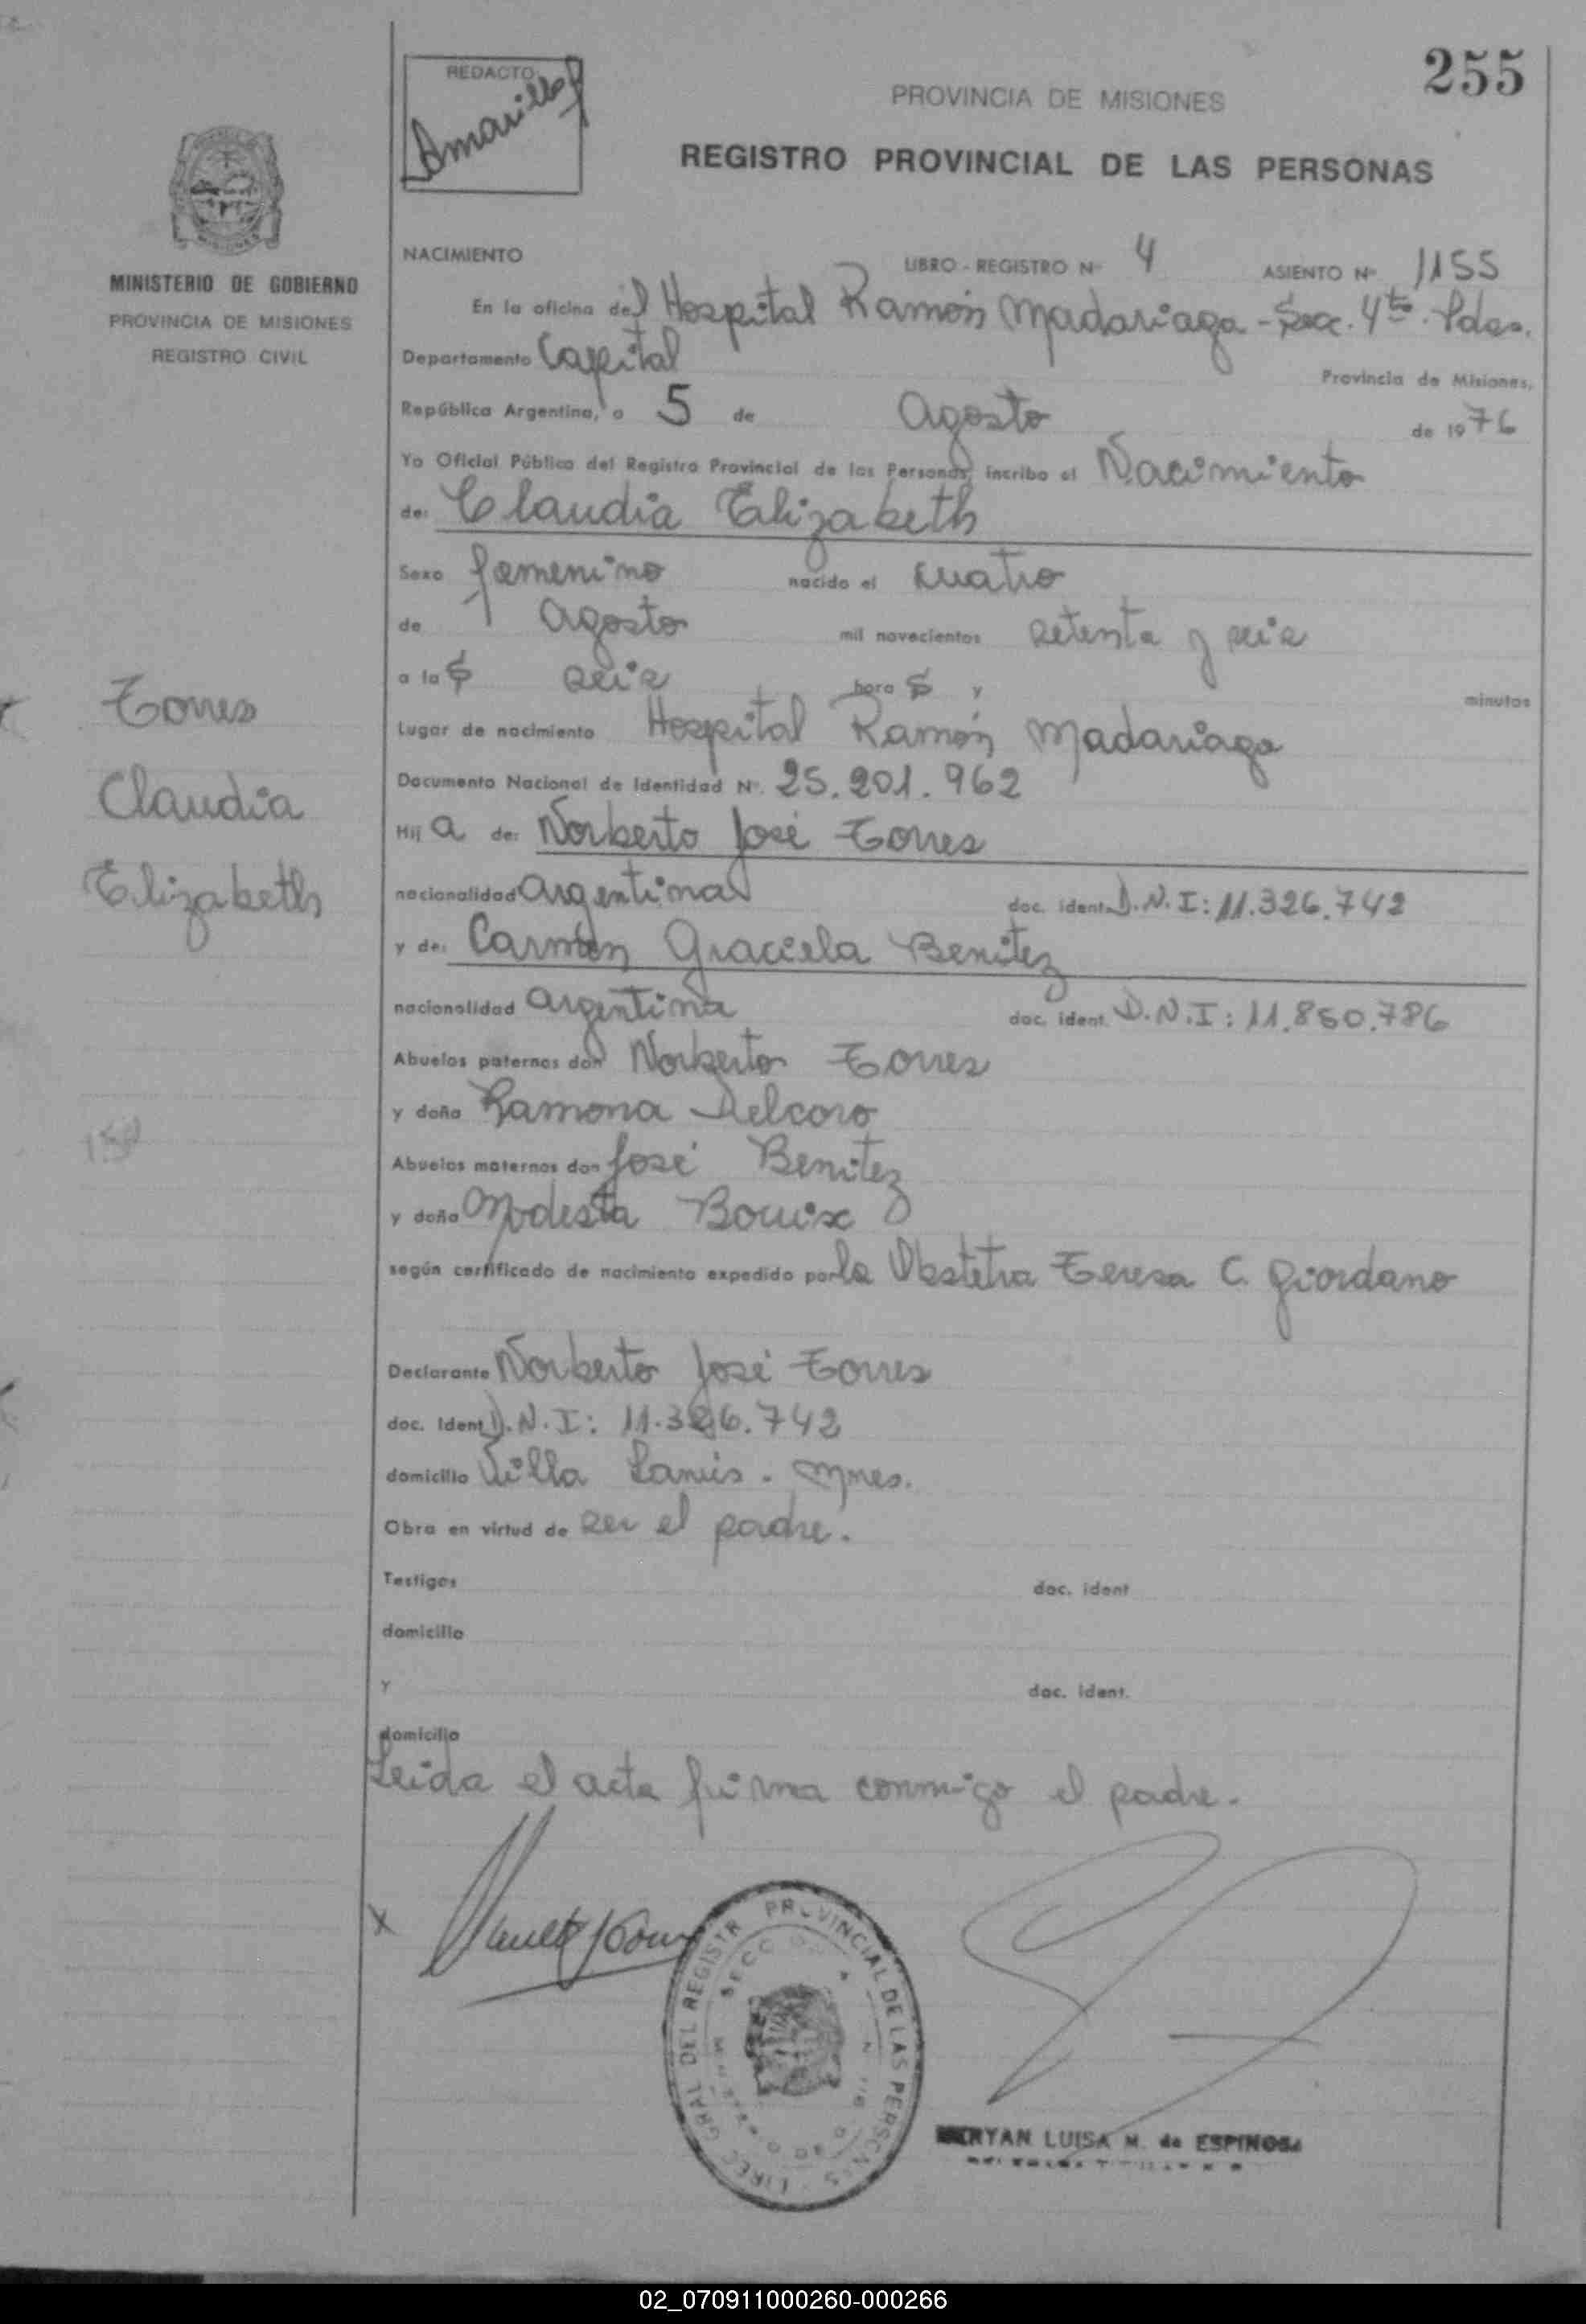 255
REDACTO
Amarilla
PROVINCIA DE MISIONES
REGISTRO PROVINCIAL DE LAS PERSONAS
MINISTERIO DE GOBIERNO
PROVINCIA DE MISIONES
REGISTRO CIVIL
NACIMIENTO LIBRO - REGISTRO Nº 4 ASIENTO Nº 1155
En la oficina del Hospital Ramón Madariaga - Secc. 4ta. Pdas.
Departamento Capital Provincia de Misiones,
República Argentina, a 5 de Agosto de 1976
Yo Oficial Público del Registro Provincial de las Personas, incribo el Nacimiento
de: Claudia Elizabeth
Sexo femenino nacido el cuatro
de Agosto mil novecientos setenta y seis
a la s seis hora s y minutos
Lugar de nacimiento Hospital Ramón Madariaga
Documento Nacional de Identidad Nº. 25.201.962
Hij a de: Norberto José Torres
nacionalidad Argentina doc. ident. D.N.I: 11.326.742
y de: Carmen Graciela Benitez
nacionalidad Argentina doc. ident. D.N.I: 11.850.786
Abuelos paternos don Norberto Torres
y doña Ramona Delcoro
Abuelos maternos don José Benitez
y doña Modesta Bouix
según certificado de nacimiento expedido por la Obstetra Teresa C. Giordano
Declarante Norberto José Torres
doc. Ident. D.N.I: 11.326.742
domicilio Villa Lanús. Mnes.
Obra en virtud de ser el padre.
Testigos doc. ident
domicilio
y doc. ident.
domicilio
Leida el acta firma conmigo el padre.
Torres
Claudia
Elizabeth
X
DIREC. GRAL DEL REGISTR PROVINCIAL DE LAS PERSONAS
MIRYAN LUISA M. de ESPINOSA
02_070911000260-000266